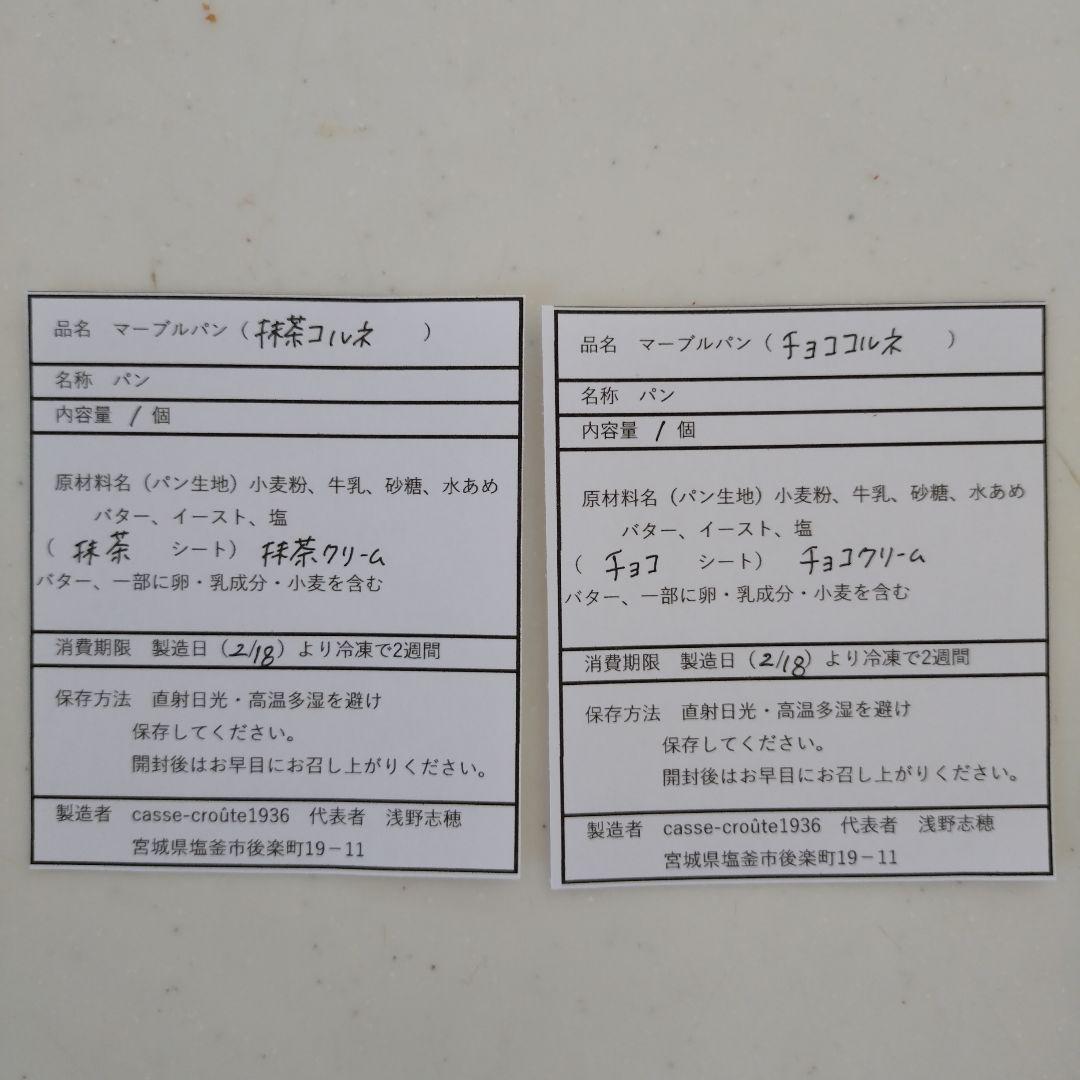 品名 マーブルパン（抹茶コルネ ）
名称 パン
内容量 1 個
原材料名（パン生地）小麦粉、牛乳、砂糖、水あめ
バター、イースト、塩
（ 抹茶 シート） 抹茶クリーム
バター、一部に卵・乳成分・小麦を含む
消費期限 製造日（2/18）より冷凍で2週間
保存方法 直射日光・高温多湿を避け
保存してください。
開封後はお早目にお召し上がりください。
製造者 casse-croûte1936 代表者 浅野志穂
宮城県塩釜市後楽町19－11
品名 マーブルパン（チョココルネ ）
名称 パン
内容量 1 個
原材料名（パン生地）小麦粉、牛乳、砂糖、水あめ
バター、イースト、塩
（ チョコ シート） チョコクリーム
バター、一部に卵・乳成分・小麦を含む
消費期限 製造日（2/18）より冷凍で2週間
保存方法 直射日光・高温多湿を避け
保存してください。
開封後はお早目にお召し上がりください。
製造者 casse-croûte1936 代表者 浅野志穂
宮城県塩釜市後楽町19－11